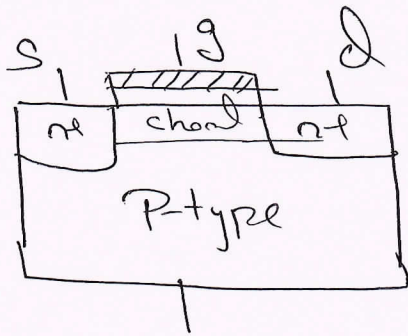 g
S d
n+ chanl n+
P-type